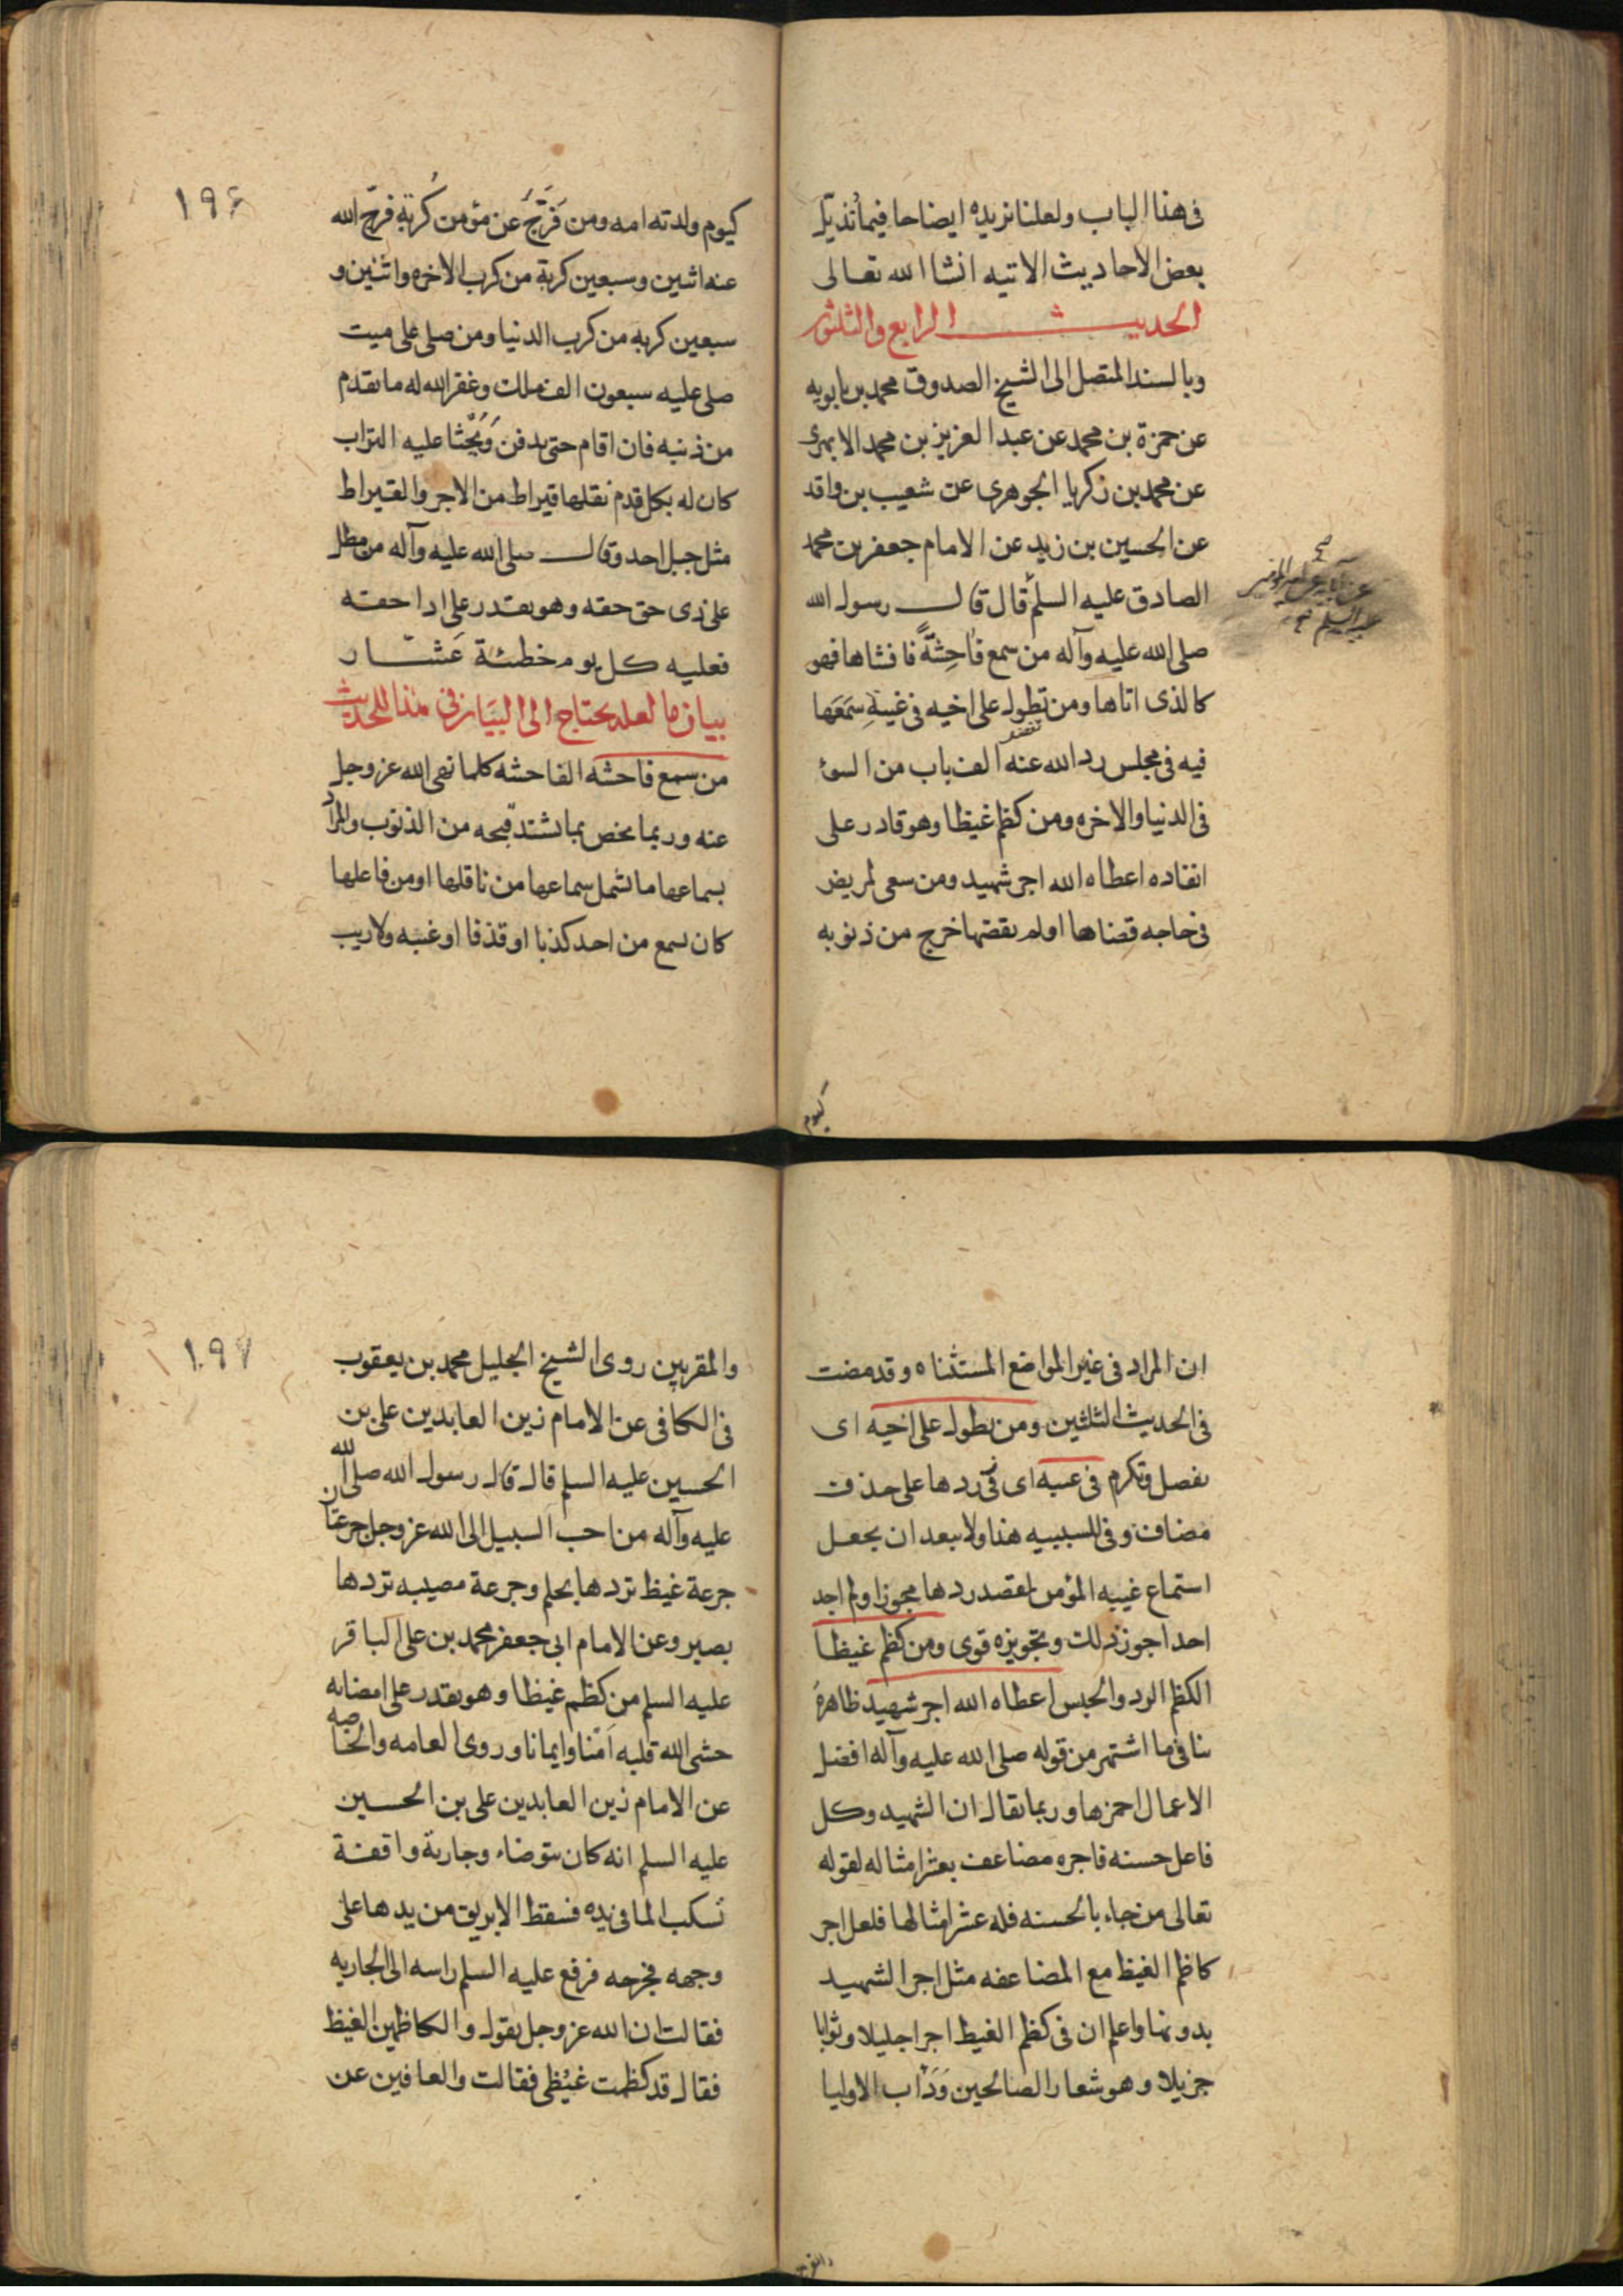 في هذا الباب ولعلنا نزيده ايضاحا فيما نذيّل
بعض الاحاديث الاتيه انشا الله تعالى
الحديث الرابع والثلثون
وبالسند المتصل الى الشيخ الصدوق محمد بن بابويه
عن حمزة بن محمد عن عبد العزيز بن محمد الابهرى
عن محمد بن زكريا الجوهرى عن شعيب بن واقد
عن الحسين بن زيد عن الامام جعفر بن محمد
الصادق عليه السلم قال قال رسول الله
صلى الله عليه وآله من سمع فاحِشَةً فافشاها فهو
كالذى اتاها ومن تطول على اخيه في غيبةٍ سَمَعَها
فيه في مجلس رد الله عنه الف باب من السوء
في الدنيا والاخره ومن كظم غيظا وهو قادر على
انفاده اعطاه الله اجر شهيد ومن سعى لمريض
في حاجه قضاها او لم يقضها خرج من ذنوبه
صح
عليه السلم
كيوم
١٩٦
كيوم ولدته امه ومن فَرَّجَ عن مؤمن كُربة فرّج الله
عنه اثنين وسبعين كربة من كرب الاخره واثنين و
سبعين كربه من كرب الدنيا ومن صلى على ميت
صلى عليه سبعون الف ملك وغفر الله له ما تقدم
من ذنبه فان اقام حتى يدفن وَيُحثا عليه التراب
كان له بكل قدم نقلها قيراط من الاجر والقيراط
مثل جبل احد وقال صلى الله عليه وآله من مطل
على ذى حق حقه وهو يقدر على ادا حقه
فعليه كل يوم خطئة عَشّار
بيان ما لعله يحتاج الى البيان في هذا الحديث
من سمع فاحشه الفاحشه كلما نهى الله عز وجل
عنه وربما يخص بما يشتد قبحه من الذنوب والمراد
بسماعها ما يشمل سماعها من ناقلها او من فاعلها
كان يسمع من احد كذبا او قذفا او غيبه ولا ريب
ان المراد في غير المواضع المستثناه وقد مضت
في الحديث الثلثين ومن تطول على اخيه اى
تفضل وتكرم في غيبه اى في ردها على حذف
مضاف وفي للسببيه هنا ولا يبعد ان يجعل
استماع غيبه المؤمن لقصد ردها مجوزا ولم اجد
احدا جوز ذلك وتجويزه قوى ومن كظم غيظا
الكظم الرد والحبس اعطاه الله اجر شهيد ظاهرهُ
ينافي ما اشتهر من قوله صلى الله عليه وآله افضل
الاعمال احمزها وربما يقال ان الشهيد وكل
فاعل حسنه فاجره مضاعف بعشر امثاله لقوله
تعالى من جاء بالحسنه فله عشر امثالها فلعل اجر
كاظم الغيظ مع المضاعفه مثل اجر الشهيد
بدونها واعلم ان في كظم الغيظ اجرا جليلا وثوابا
جزيلا وهو شعار الصالحين وَدَأب الاوليا
١٩٧
والمقربين روى الشيخ الجليل محمد بن يعقوب
في الكافى عن الامام زين العابدين على بن
الحسين عليه السلم قال قال رسول الله صلى الله
عليه وآله من احب السبيل الى الله عز وجل جرعتان
جرعة غيظ تردها بحلم وجرعة مصيبه تردها
بصبر وعن الامام ابى جعفر محمد بن على الباقر
عليه السلم من كظم غيظا وهو يقدر على امضائه
حشى الله قلبه اَمنا وايمانا وروى العامه والخاصه
عن الامام زين العابدين على بن الحسين
عليه السلم انه كان يتوضاء وجارية واقفة
تسكب الما في يده فسقط الابريق من يدها على
وجهه فجرحه فرفع عليه السلم راسه الى الجاريه
فقالت ان الله عز وجل يقول والكاظمين الغيظ
فقال قد كظمت غيْظى فقالت والعافين عن